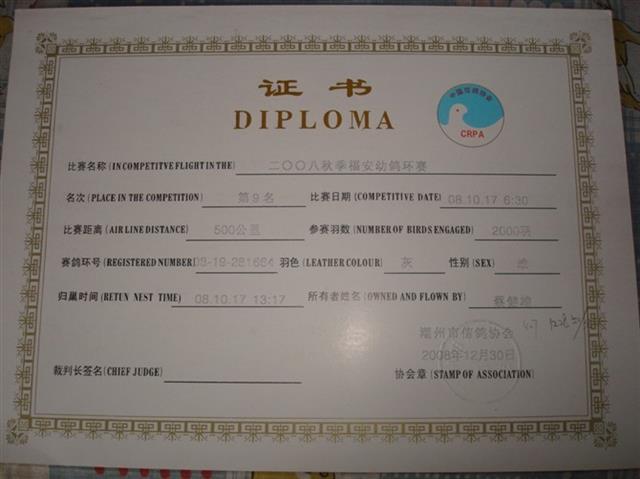 证书
中国信鸽协会
CRPA
DIPLOMA
比赛名称 (IN COMPETITVE FLIGHT IN THE) 二〇〇八秋季福安幼鸽环赛
名次 (PLACE IN THE COMPETITION) 第9名 比赛日期 (COMPETITIVE DATE) 08.10.17 6:30
比赛距离 (AIR LINE DISTANCE) 500公里 参赛羽数 (NUMBER OF BIRDS ENGAGED) 2000羽
赛鸽环号 (REGISTERED NUMBER) 08-19-281664 羽色 (LEATHER COLOUR) 灰 性别 (SEX)
归巢时间 (RETUN NEST TIME) 08.10.17 13:17 所有者姓名 (OWNED AND FLOWN BY)
潮州市信鸽协会
2008年12月30日
裁判长签名 (CHIEF JUDGE) 协会章 (STAMP OF ASSOCIATION)